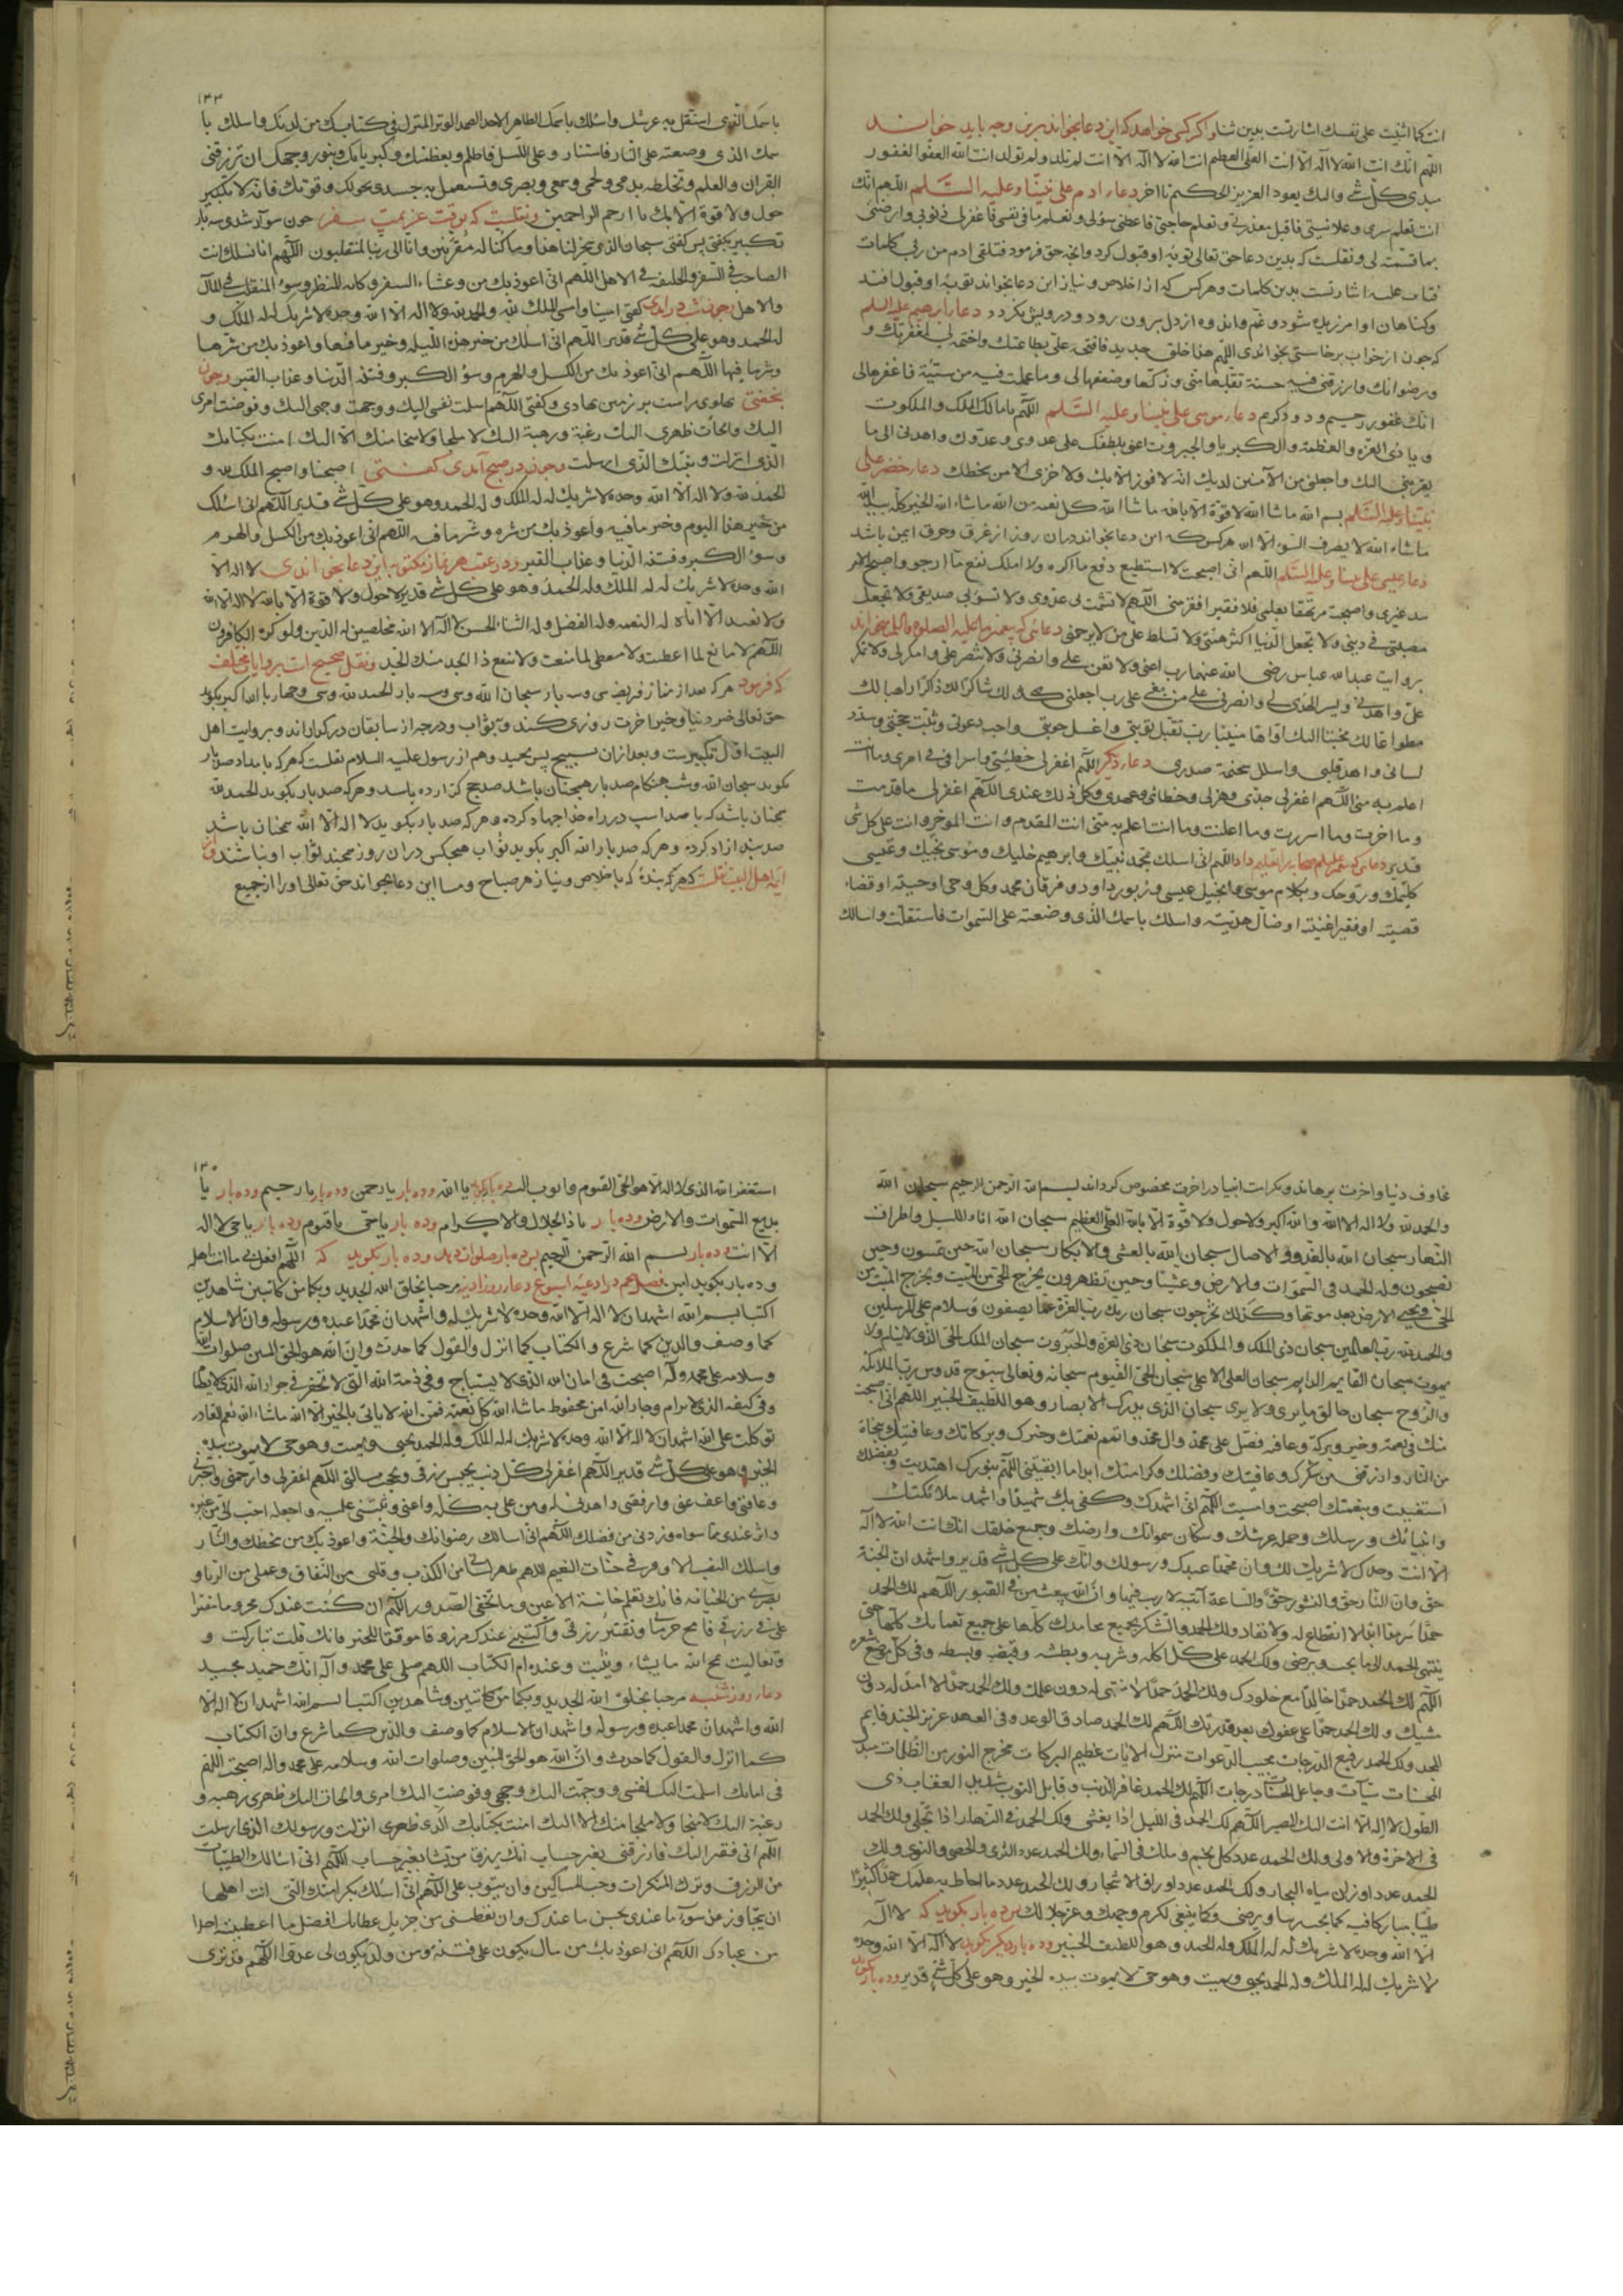 انت کما اثنیت علی نفسک اشارتست بدین ثنا و اکر کسی خواهد که این دعا بخواند برین وجه باید خواند
اللهم انک انت الله لا اله الا انت العلی العظیم انت الله لا اله الا انت لم تلد ولم تولد انت الله العفو الغفور
مبدی کل شے والیک یعود العزیز الحکیم تا اخر دعاء ادم علی نبینا وعلیه السلم اللهم انک
انت تعلم سری وعلانیتی فاقبل معذرتی وتعلم حاجتی فاعطنی سؤلی وتعلم ما فی نفسی فاغفر لی ذنوبی وارضنی
بما قسمته لی ونقلست که بدین دعا حق تعالی توبه او قبول کرد وانچه حق فرمود فتلقی ادم من ربه کلمات
فتاب علیه اشارتست بدین کلمات وهرکس که از اخلاص ونیاز این دعا بخواند توبه او قبول افتد
وکناهان او امرزیده شود وغم واندوه از دل برون رود ودرویش نکردد دعاء ابرهیم علیه السلم
که چون از خواب برخاستی بخواندی اللهم هذا خلق جدید فافتحه علی بطاعتک واختمه لی بمغفرتک و
ورضوانک وارزقنی فیه حسنة تقبلها منی وزکها وضعفها لی وما عملت فیه من سیئة فاغفرها لی
انک غفور رحیم ودود کریم دعاء موسی علی نبینا وعلیه السلم اللهم یا مالک الملک والملکوت
ویا ذی العزة والعظمة والکبریاء والجبروت اعنی بلطفک علی عدوی وعدوک واهدنی الی ما
یقربنی الیک واجعلنی من الآمنین لدیک انه لا فوز الا بک ولا خزی الا من سخطک دعاء خضر علی
نبینا وعلیه السلم بسم الله ما شا الله لا قوة الا بالله ما شا الله کل نعمة من الله ما شاء الله الخیر کله بید الله
ماشاء الله لا یصرف السوء الا الله هرکس که این دعا بخواند دران روز از غرق وحرق ایمن باشد
دعا عیسی علی نبینا وعلیه السلم اللهم انی اصبحت لا استطیع دفع ما اکره ولا املک نفع ما ارجو واصبح الامر
بید غیری واصبحت مرتهنا بعملی فلا فقیر افقر منی اللهم لا تشمت لی عدوی ولا تسؤ بی صدیقی ولا تجعل
مصیبتی فی دینی ولا تجعل الدنیا اکثر همتی ولا تسلط علی من لا یرحمنی
بروایت عبدالله عباس رضی الله عنهما رب اعنی ولا تعن علی وانصرنی ولا تنصر علی وامکر لی ولا تمکر
علی واهدنی ویسر الهدی لی وانصرنی علی من بغی علی رب اجعلنی لک شاکرا لک ذاکرا راهبا لک
مطواعا لک مخبتا الیک اواها منیبا رب تقبل توبتی واغسل حوبتی واجب دعوتی وثبت حجتی وسدد
لسانی واهد قلبی واسلل سخیمة صدری دعاء دیکر اللهم اغفر لی خطیئتی واسرافی فی امری وما انت
اعلم به منی اللهم اغفر لی جدی وهزلی وخطائی وعمدی وکل ذلک عندی اللهم اغفر لی ما قدمت
وما اخرت وما اسررت وما اعلنت وما انت اعلم به منی انت المقدم وانت المؤخر وانت علی کل شی
قدیر اللهم انی اسئلک بمحمد نبیک وابرهیم خلیلک وموسی نجیک وعیسی
کلمتک وروحک وبکلام موسی وانجیل عیسی وزبور داود وفرقان محمد وکل وحی اوحیته او قضاء
قضیته او فقیر اغنیته او ضال هدیته واسئلک باسمک الذی وضعته علی السموات فاستقلت واسالک
۱۳۳
باسمک الذی استقل به عرشک واسئلک باسمک الطاهر الاحد الصمد الوتر المنزل فی کتابک من لدنک واسلک با
سمک الذی وضعته علی النهار فاستنار وعلی اللیل فاظلم وبعظمتک وکبریائک وبنور وجهک ان ترزقنی
القران والعلم وتخلطه بدمی ولحمی وسمعی وبصری وتستعمل به جسدی بحولک وقوتک فانه لا
حول ولا قوة الا بک یا ارحم الراحمین ونقلست که بوقت عزیمت سفر چون سوار شدی سه بار
تکبیر بکفتی پس کفتی سبحان الذی سخر لنا هذا وما کنا له مقرنین وانا الی ربنا لمنقلبون اللهم انا نسلک انت
الصاحب فی السفر والخلیفة فی الاهل اللهم انی اعوذ بک من وعثاء السفر وکابة المنظر وسوء المنقلب فی المال
والاهل چون شب درامدی کفتی امسینا وامسی الملک لله والحمد لله ولا اله الا الله وحده لا شریک له له الملک و
له الحمد وهو علی کل شے قدیر اللهم انی اسلک من خیر هذه اللیلة وخیر ما فیها واعوذ بک من شرها
وشر ما فیها اللهم انی اعوذ بک من الکسل والهرم وسوء الکبر وفتنة الدنیا وعذاب القبر وچون
بخفتی پهلوی راست بر زمین نهادی وکفتی اللهم اسلمت نفسی الیک ووجهت وجهی الیک وفوضت امری
الیک والجأت ظهری الیک رغبة ورهبة الیک لا ملجا ولا منجا منک الا الیک امنت بکتابک
الذی انزلت ونبیک الذی ارسلت وچون در صبح آمدی کفتی اصبحنا واصبح الملک لله و
الحمد لله ولا اله الا الله وحده لا شریک له له الملک وله الحمد وهو علی کل شے قدیر اللهم انی اسئلک
من خیر هذا الیوم وخیر ما فیه واعوذ بک من شره وشر ما فیه اللهم انی اعوذ بک من الکسل والهرم
وسوء الکبر وفتنة الدنیا وعذاب القبر ودر عقب هر نماز مکتوبه این دعا بخواندی لا اله الا
الله وحده لا شریک له له الملک وله الحمد وهو علی کل شے قدیر لا حول ولا قوة الا بالله لا اله الا الله
ولا نعبد الا ایاه له النعمة وله الفضل وله الثناء الحسن لا اله الا الله مخلصین له الدین ولو کره الکافرون
اللهم لا مانع لما اعطیت ولا معطی لما منعت ولا ینفع ذا الجد منک الجد ونقل صحیح است بروایات مختلف
که فرمود هرکه بعد از نماز فریضه سی وسه بار سبحان الله وسی وسه بار الحمد لله وسی وچهار بار الله اکبر بکوید
حق تعالی خیر دنیا وخیر اخرت روزی کند وبثواب ودرجه از سابقان درکذراند وبروایت اهل
البیت اول تکبیرست وبعد ازان تسبیح پس تحمید وهم از رسول علیه السلام نقلست که هرکه بامداد صد بار
بکوید سبحان الله وشبهنکام صد بار همچنان باشد صد حج کزارده باشد وهرکه صد بار بکوید الحمد لله
همچنان باشد که با صد اسب در راه خدا جهاد کرده وهرکه صد بار بکوید لا اله الا الله همچنان باشد
صد بنده ازاد کرده وهرکه صد بار الله اکبر بکوید بثواب هیچکس دران روز همچند ثواب او نباشد واز
ایمه اهل البیت نقلست که هرکه بنده که باخلاص ونیاز هر صباح ومسا این دعا بخواند حق تعالی او را از جمیع
مخاوف دنیا واخرت برهاند وبکرامت انبیا در اخرت مخصوص کرداند بسم الله الرحمن الرحیم سبحان الله
والحمد لله ولا اله الا الله والله اکبر ولا حول ولا قوة الا بالله العلی العظیم سبحان الله اناء اللیل واطراف
النهار سبحان الله بالغدو والاصال سبحان الله بالعشی والابکار سبحان الله حین تمسون وحین
تصبحون وله الحمد فی السموات والارض وعشیا وحین تظهرون یخرج الحی من المیت ویخرج المیت من
الحی ویحیی الارض بعد موتها وکذلک تخرجون سبحان ربک رب العزة عما یصفون وسلام علی المرسلین
والحمد لله رب العالمین سبحان ذی الملک والملکوت سبحان ذی العزة والجبروت سبحان الملک الحی الذی لا ینام ولا
یموت سبحان القایم الدایم سبحان العلی الاعلی سبحان الحی القیوم سبحانه وتعالی سبوح قدوس رب الملائکة
والروح سبحان خالق ما یری ولا یری سبحان الذی یدرک الابصار وهو اللطیف الخبیر اللهم انی اصبحت
منک فی نعمة وخیر وبرکة وعافیة فصل علی محمد وال محمد واتمم نعمتک وخیرک وبرکاتک وعافیتک بنجاة
من النار وارزقنی شکرک وعافیتک وفضلک وکرامتک ابدا ما ابقیتنی اللهم بنورک اهتدیت وبفضلک
استغنیت وبنعمتک اصبحت وامسیت اللهم انی اشهدک وکفی بک شهیدا واشهد ملائکتک
وانبیائک ورسلک وحملة عرشک وسکان سمواتک وارضک وجمیع خلقک انک انت الله لا اله
الا انت وحدک لا شریک لک وان محمدا عبدک ورسولک وانک علی کل شے قدیر واشهد ان الجنة
حق وان النار حق والنشور حق والساعة آتیة لا ریب فیها وان الله یبعث من فی القبور اللهم لک الحمد
حمدا سرمدا ابدا لا انقطاع له ولا نفاد ولک الحمد والشکر بجمیع محامدک کلها علی جمیع نعمائک کلها حتی
ینتهی الحمد الی ما تحب وترضی ولک الحمد علی کل اکلة وشربة وبطشة وقبضة وبسطة وفی کل موضع شعرة
اللهم لک الحمد حمدا خالدا مع خلودک ولک الحمد حمدا لا منتهی له دون علمک ولک الحمد حمدا لا امد له دون
مشیک ولک الحمد حمدا علی عفوک بعد قدرتک اللهم لک الحمد صادق الوعد وفی العهد عزیز الجند قایم
المجد ولک الحمد رفیع الدرجات مجیب الدعوات منزل الایات عظیم البرکات مخرج النور من الظلمات مبدل
السیئات حسنات وجاعل الحسنات درجات اللهم لک الحمد غافر الذنب وقابل التوب شدید العقاب ذی
الطول لا اله الا انت الیک المصیر اللهم لک الحمد فی اللیل اذا یغشی ولک الحمد فی النهار اذا تجلی ولک الحمد
فی الاخرة والاولی ولک الحمد عدد کل نجم وملک فی السماء ولک الحمد عدد الثری والحصی والنوی ولک
الحمد عدد اوزان میاه البحار ولک الحمد عدد اوراق الاشجار ولک الحمد عدد ما احاط به علمک حمدا کثیرا
طیبا مبارکا فیه کما تحب ربنا وترضی وکما ینبغی لکرم وجهک وعز جلالک پس ده بار بکوید که لا اله
الا الله وحده لا شریک له له الملک وله الحمد وهو اللطیف الخبیر وده بار دیکر بکوید لا اله الا الله وحده
لا شریک له له الملک وله الحمد یحیی ویمیت وهو حی لا یموت بیده الخیر وهو علی کل شے قدیر وده بار بکوید
۱۳۵
استغفر الله الذی لا اله الا هو الحی القیوم واتوب الیه یا الله وده بار یا رحمن وده بار یا رحیم وده بار یا
بدیع السموات والارض وده بار یا ذا الجلال والاکرام وده بار یا حی یا قیوم وده بار یا حی لا اله
الا انت وده بار بسم الله الرحمن الرحیم پس ده بار صلوات دهد وده بار بکوید که اللهم افعل بی ما انت اهله
وده بار بکوید امین فصل در ادعیه اسبوع دعاء روز ادینه مرحبا بخلق الله الجدید وبکما من کاتبین شاهدین
اکتبا بسم الله اشهد ان لا اله الا الله وحده لا شریک له واشهد ان محمدا عبده ورسوله وان الاسلام
کما وصف والدین کما شرع والکتاب کما انزل والقول کما حدث وان الله هو الحق المبین وصلوات الله
وسلامه علی محمد وآله اصبحت فی امان الله الذی لا یستباح وفی ذمة الله التی لا تخفر وفی جوار الله الذی لا یضام
وفی کنفه الذی لا یرام وجار الله امن محفوظ ماشاء الله کل نعمة فمن الله لا یاتی بالخیر الا الله ماشاء الله نعم القادر
توکلت علی الله اشهد ان لا اله الا الله وحده لا شریک له له الملک وله الحمد یحیی ویمیت وهو حی لا یموت بیده
الخیر وهو علی کل شے قدیر اللهم اغفر لی کل ذنب یحبس رزقی ویحجب مسالتی اللهم اغفر لی وارحمنی واجرنی
وعافنی واعف عنی وارفعنی واهدنی واجعله احب الی من غیره
واثر عندی مما سواه وزدنی من فضلک اللهم انی اسالک رضوانک والجنة واعوذ بک من سخطک والنار
واسلک النصیب الاوفر فی جنات النعیم اللهم طهر لسانی من الکذب وقلبی من النفاق وعملی من الریا و
بصری من الخیانة فانک تعلم خائنة الاعین وما تخفی الصدور اللهم ان کنت عندک محروما مقترا
علی فی رزقی فامح حرمانی وتقتیر رزقی واکتبنی عندک مرزوقا موفقا للخیر فانک قلت تبارکت و
وتعالیت یمح الله ما یشاء ویثبت وعنده ام الکتاب اللهم صلی علی محمد وآله انک حمید مجید
دعاء روز شنبه مرحبا بخلق الله الجدید وبکما من کاتبین وشاهدین اکتبا بسم الله اشهد ان لا اله الا
الله واشهد ان محمدا عبده ورسوله واشهد ان الاسلام کما وصف والدین کما شرع وان الکتاب
کما انزل والقول کما حدث وان الله هو الحق المبین وصلوات الله وسلامه علی محمد واله اصبحت اللهم
فی امانک اسلمت الیک نفسی ووجهت الیک وجهی وفوضت الیک امری والجات الیک ظهری رهبة و
رغبة الیک لا منجا ولا ملجا منک الا الیک امنت بکتابک الذی انزلت ورسولک الذی ارسلت
اللهم انی فقیر الیک فارزقنی بغیر حساب انک ترزق من تشا بغیر حساب اللهم انی اسالک الطیبات
من الرزق وترک المنکرات وحب المساکین وان تتوب علی اللهم انی اسئلک بکرامتک التی انت اهلها
ان تجاوز عن سوء ما عندی بحسن ما عندک وان تعطینی من جزیل عطائک افضل ما اعطیته احدا
من عبادک اللهم انی اعوذ بک من مال یکون علی فتنة ومن ولد یکون لی عدوا اللهم قد تری